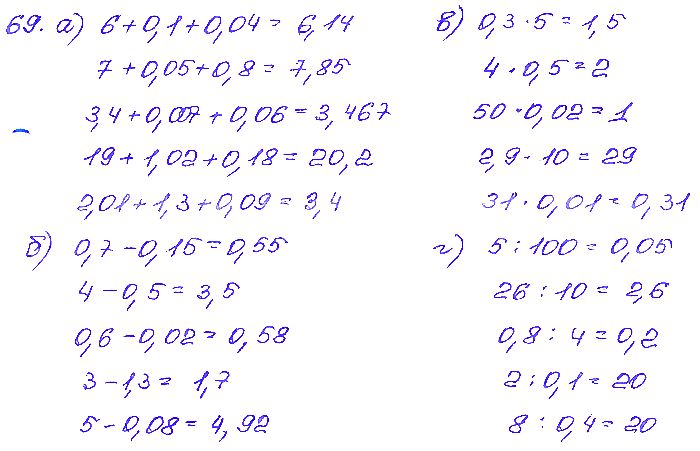 69. а) 6 + 0,1 + 0,04 = 6,14
7 + 0,05 + 0,8 = 7,85
3,4 + 0,007 + 0,06 = 3,467
19 + 1,02 + 0,18 = 20,2
2,01 + 1,3 + 0,09 = 3,4
б) 0,7 - 0,15 = 0,55
4 - 0,5 = 3,5
0,6 - 0,02 = 0,58
3 - 1,3 = 1,7
5 - 0,08 = 4,92
в) 0,3 · 5 = 1,5
4 · 0,5 = 2
50 · 0,02 = 1
2,9 · 10 = 29
31 · 0,01 = 0,31
г) 5 : 100 = 0,05
26 : 10 = 2,6
0,8 : 4 = 0,2
2 : 0,1 = 20
8 : 0,4 = 20